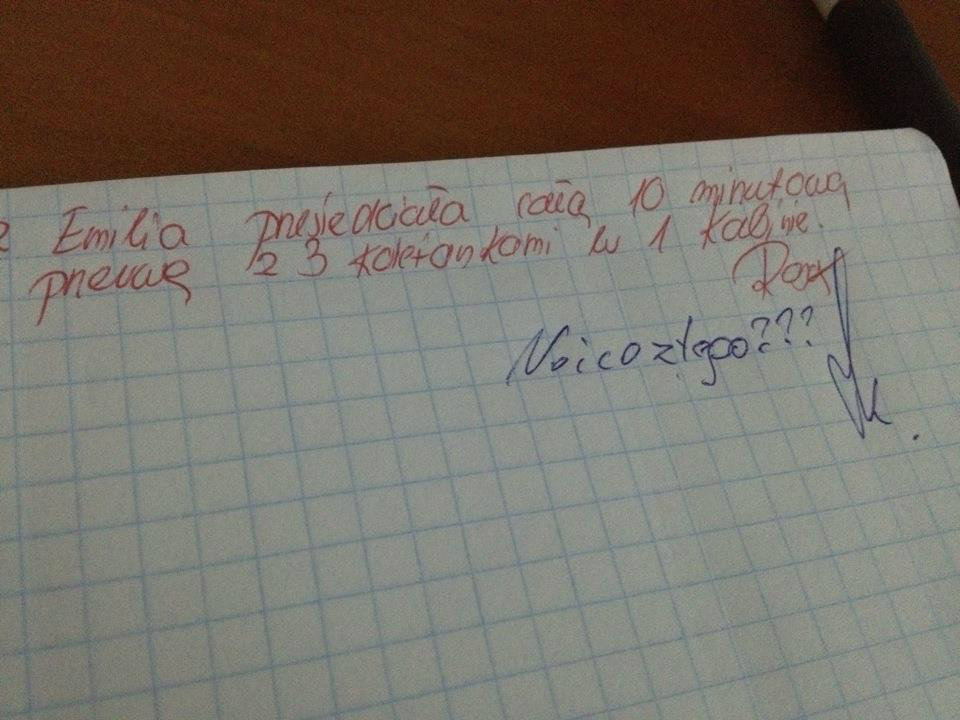 Emilia przesiedziała całą 10 minutową
przerwę z 3 koleżankami w 1 kabinie.
No i co z tego???